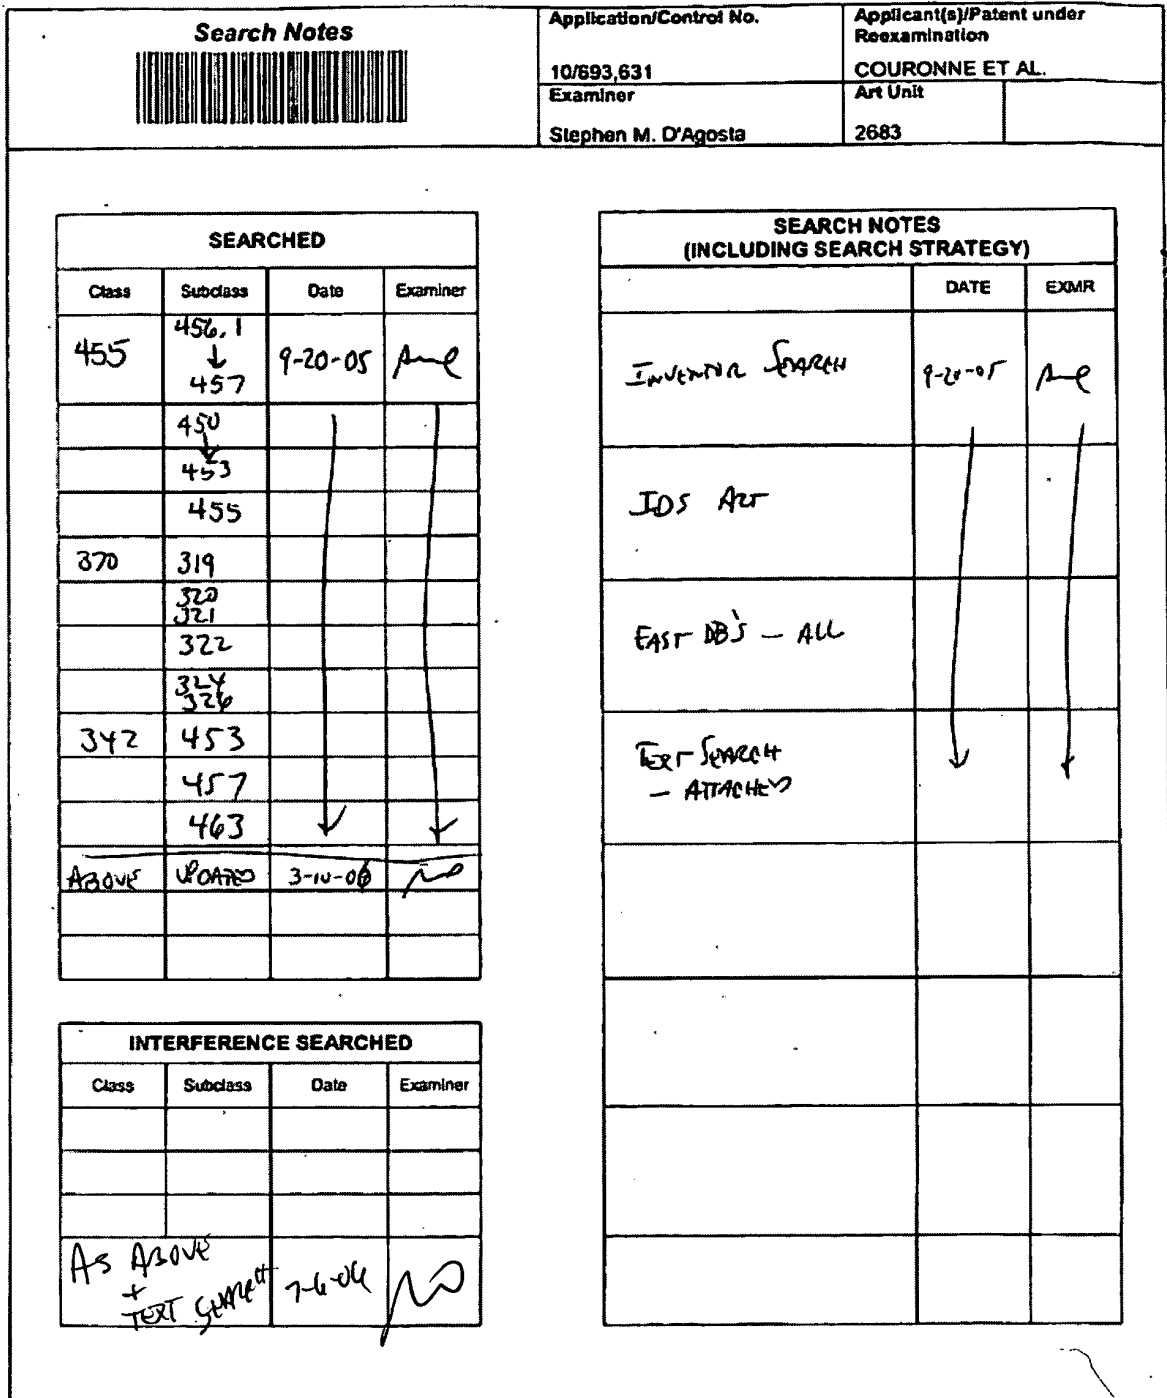 Search Notes
Application/Control No.
10/693,631
Applicant(s)/Patent under
Reexamination
COURONNE ET AL.
Examiner
Stephen M. D'Agosta
Art Unit
2683
SEARCHED
Class Subclass Date Examiner
455 456.1 ↓ 457 9-20-05
450
↓
453
455
370 319
320
321
322
324
326
342 453
457
463
ABOVE UPDATED 3-10-06
INTERFERENCE SEARCHED
Class Subclass Date Examiner
AS ABOVE
+
TEXT SEARCH 7-6-06
SEARCH NOTES
(INCLUDING SEARCH STRATEGY)
DATE EXMR
INVENTOR SEARCH 9-20-05
IDS ART
EAST DB'S - ALL
TEXT SEARCH
- ATTACHED